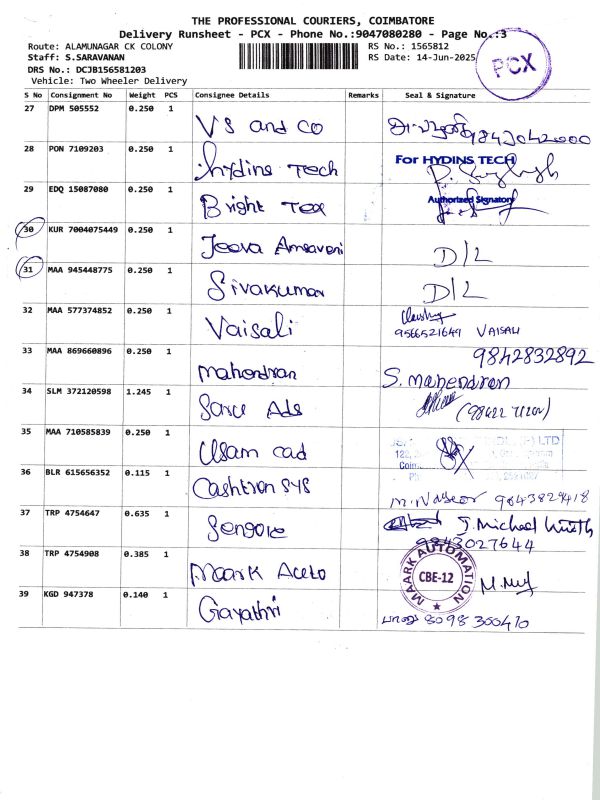 THE PROFESSIONAL COURIERS, COIMBATORE
Delivery Runsheet - PCX - Phone No.:9047080280 - Page No.:3
Route: ALAMUNAGAR CK COLONY
RS No.: 1565812
Staff: S.SARAVANAN
RS Date: 14-Jun-2025
PCX
DRS No.: DCJB156581203
Vehicle: Two Wheeler Delivery
S No Consignment No Weight PCS Consignee Details Remarks Seal & Signature
27 DPM 505552 0.250 1 VS and CO 9843042000
28 PON 7109203 0.250 1 Hydins Tech For HYDINS TECH
29 EDQ 15087080 0.250 1 Bright Tex Authorized Signatory
30 KUR 7004075449 0.250 1 Jeeva D/L
31 MAA 945448775 0.250 1 Sivakumar D/L
32 MAA 577374852 0.250 1 Vaisali 9566521649 VAISALI
33 MAA 869660896 0.250 1 Mahendran 9842832892
S. Mahendran
34 SLM 372120598 1.245 1 Saru Ads
35 MAA 710585839 0.250 1 Usam cad LTD
36 BLR 615656352 0.115 1 Cashtron SYS 9843829418
37 TRP 4754647 0.635 1 S. Michael
9843027644
38 TRP 4754908 0.385 1 Maark MAARK AUTOMATION
CBE-12
39 KGD 947378 0.140 1 Gayathri 8098300410